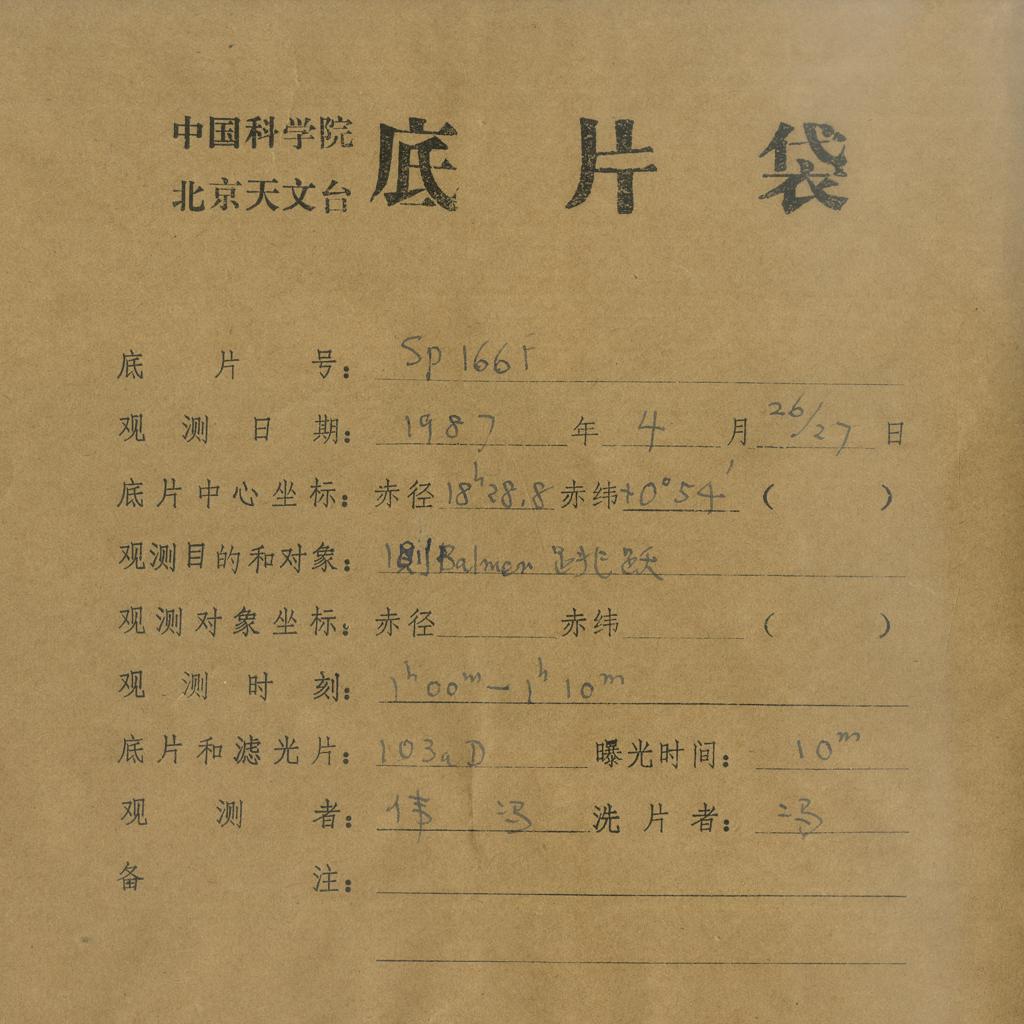 中国科学院
北京天文台
底片袋
底片号： Sp 1665
观测日期： 1987 年 4 月 26/27 日
底片中心坐标： 赤径 18ʰ28.8 赤纬 +0°54′ （ ）
观测目的和对象： 测Balmer 跳跃
观测对象坐标： 赤径 赤纬 （ ）
观测时刻： 1ʰ00ᵐ－1ʰ10ᵐ
底片和滤光片： 103aD 曝光时间： 10ᵐ
观测者： 伟 冯 洗片者： 冯
备注：